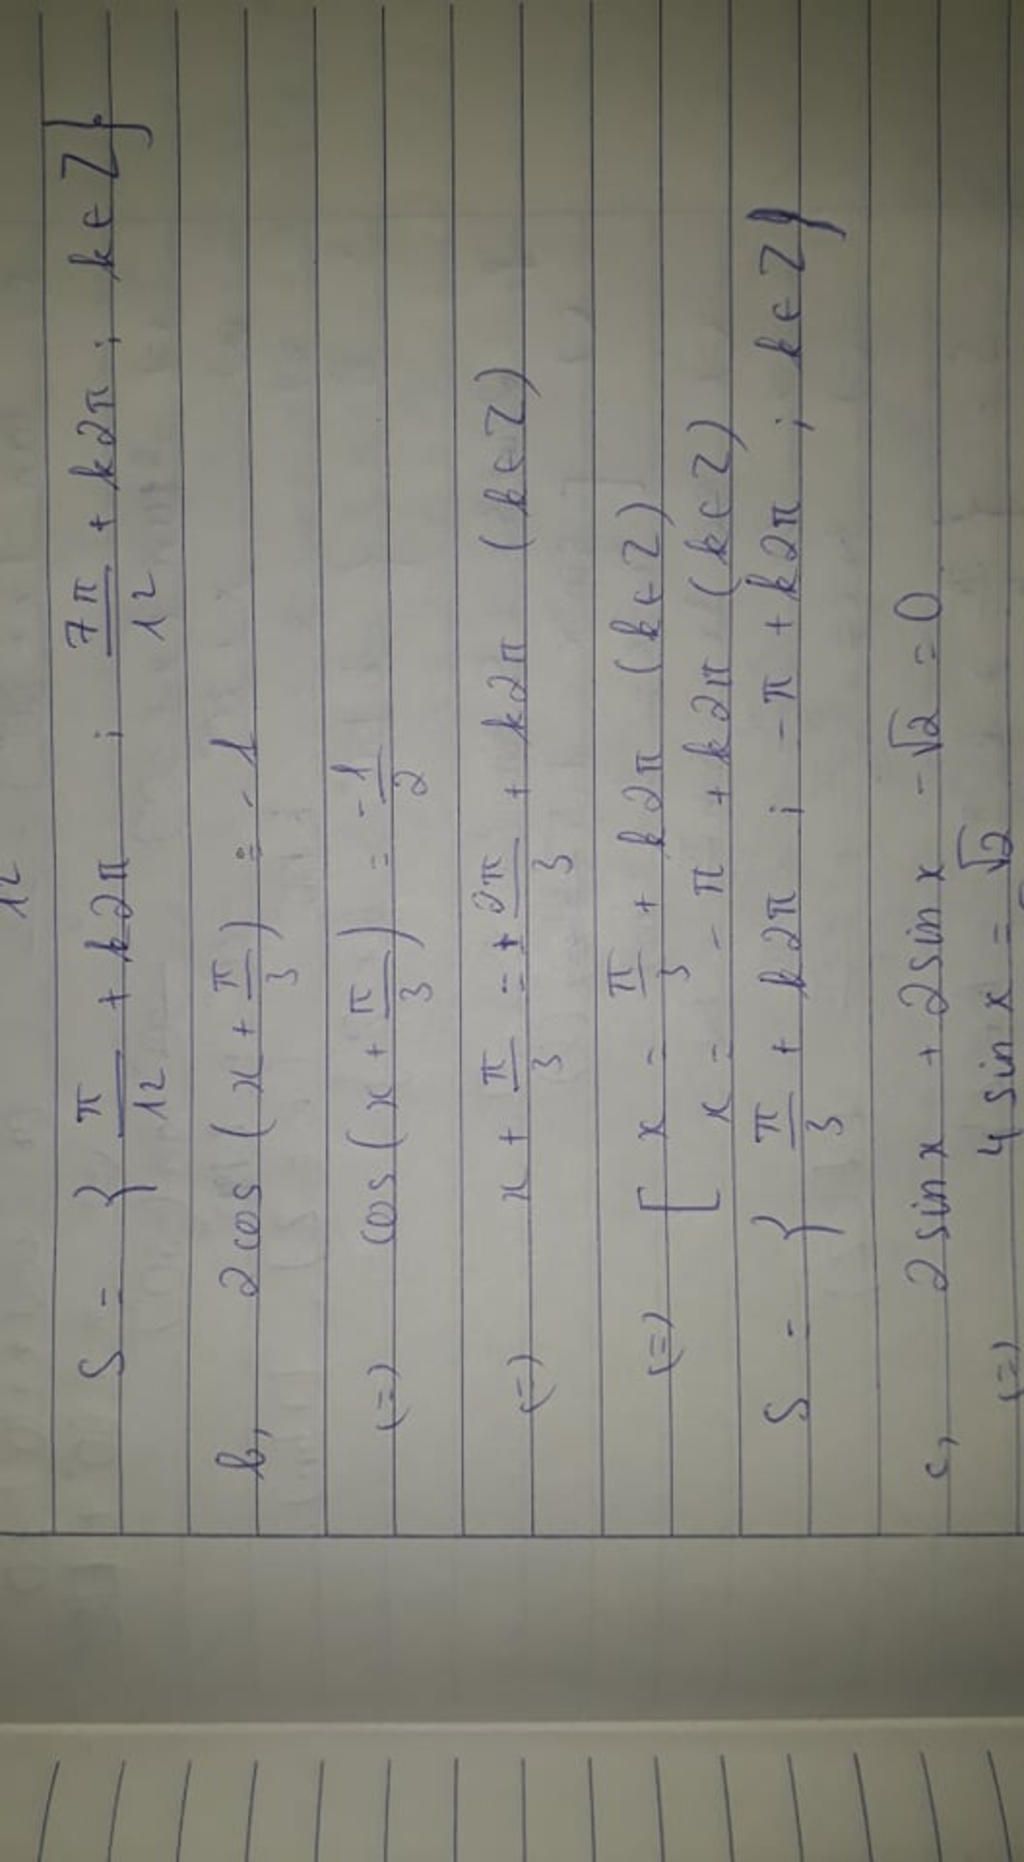 12
S = { π/12 + k2π ; 7π/12 + k2π ; k ∈ Z }
b, 2cos ( x + π/3 ) = - 1
(=) cos ( x + π/3 ) = - 1/2
(=) x + π/3 = ± 2π/3 + k2π (k ∈ Z)
(=) [ x = π/3 + k2π (k ∈ Z)
x = - π + k2π (k ∈ Z)
S = { π/3 + k2π ; - π + k2π ; k ∈ Z }
c, 2sinx + 2sinx - √2 = 0
(=) 4sinx = √2